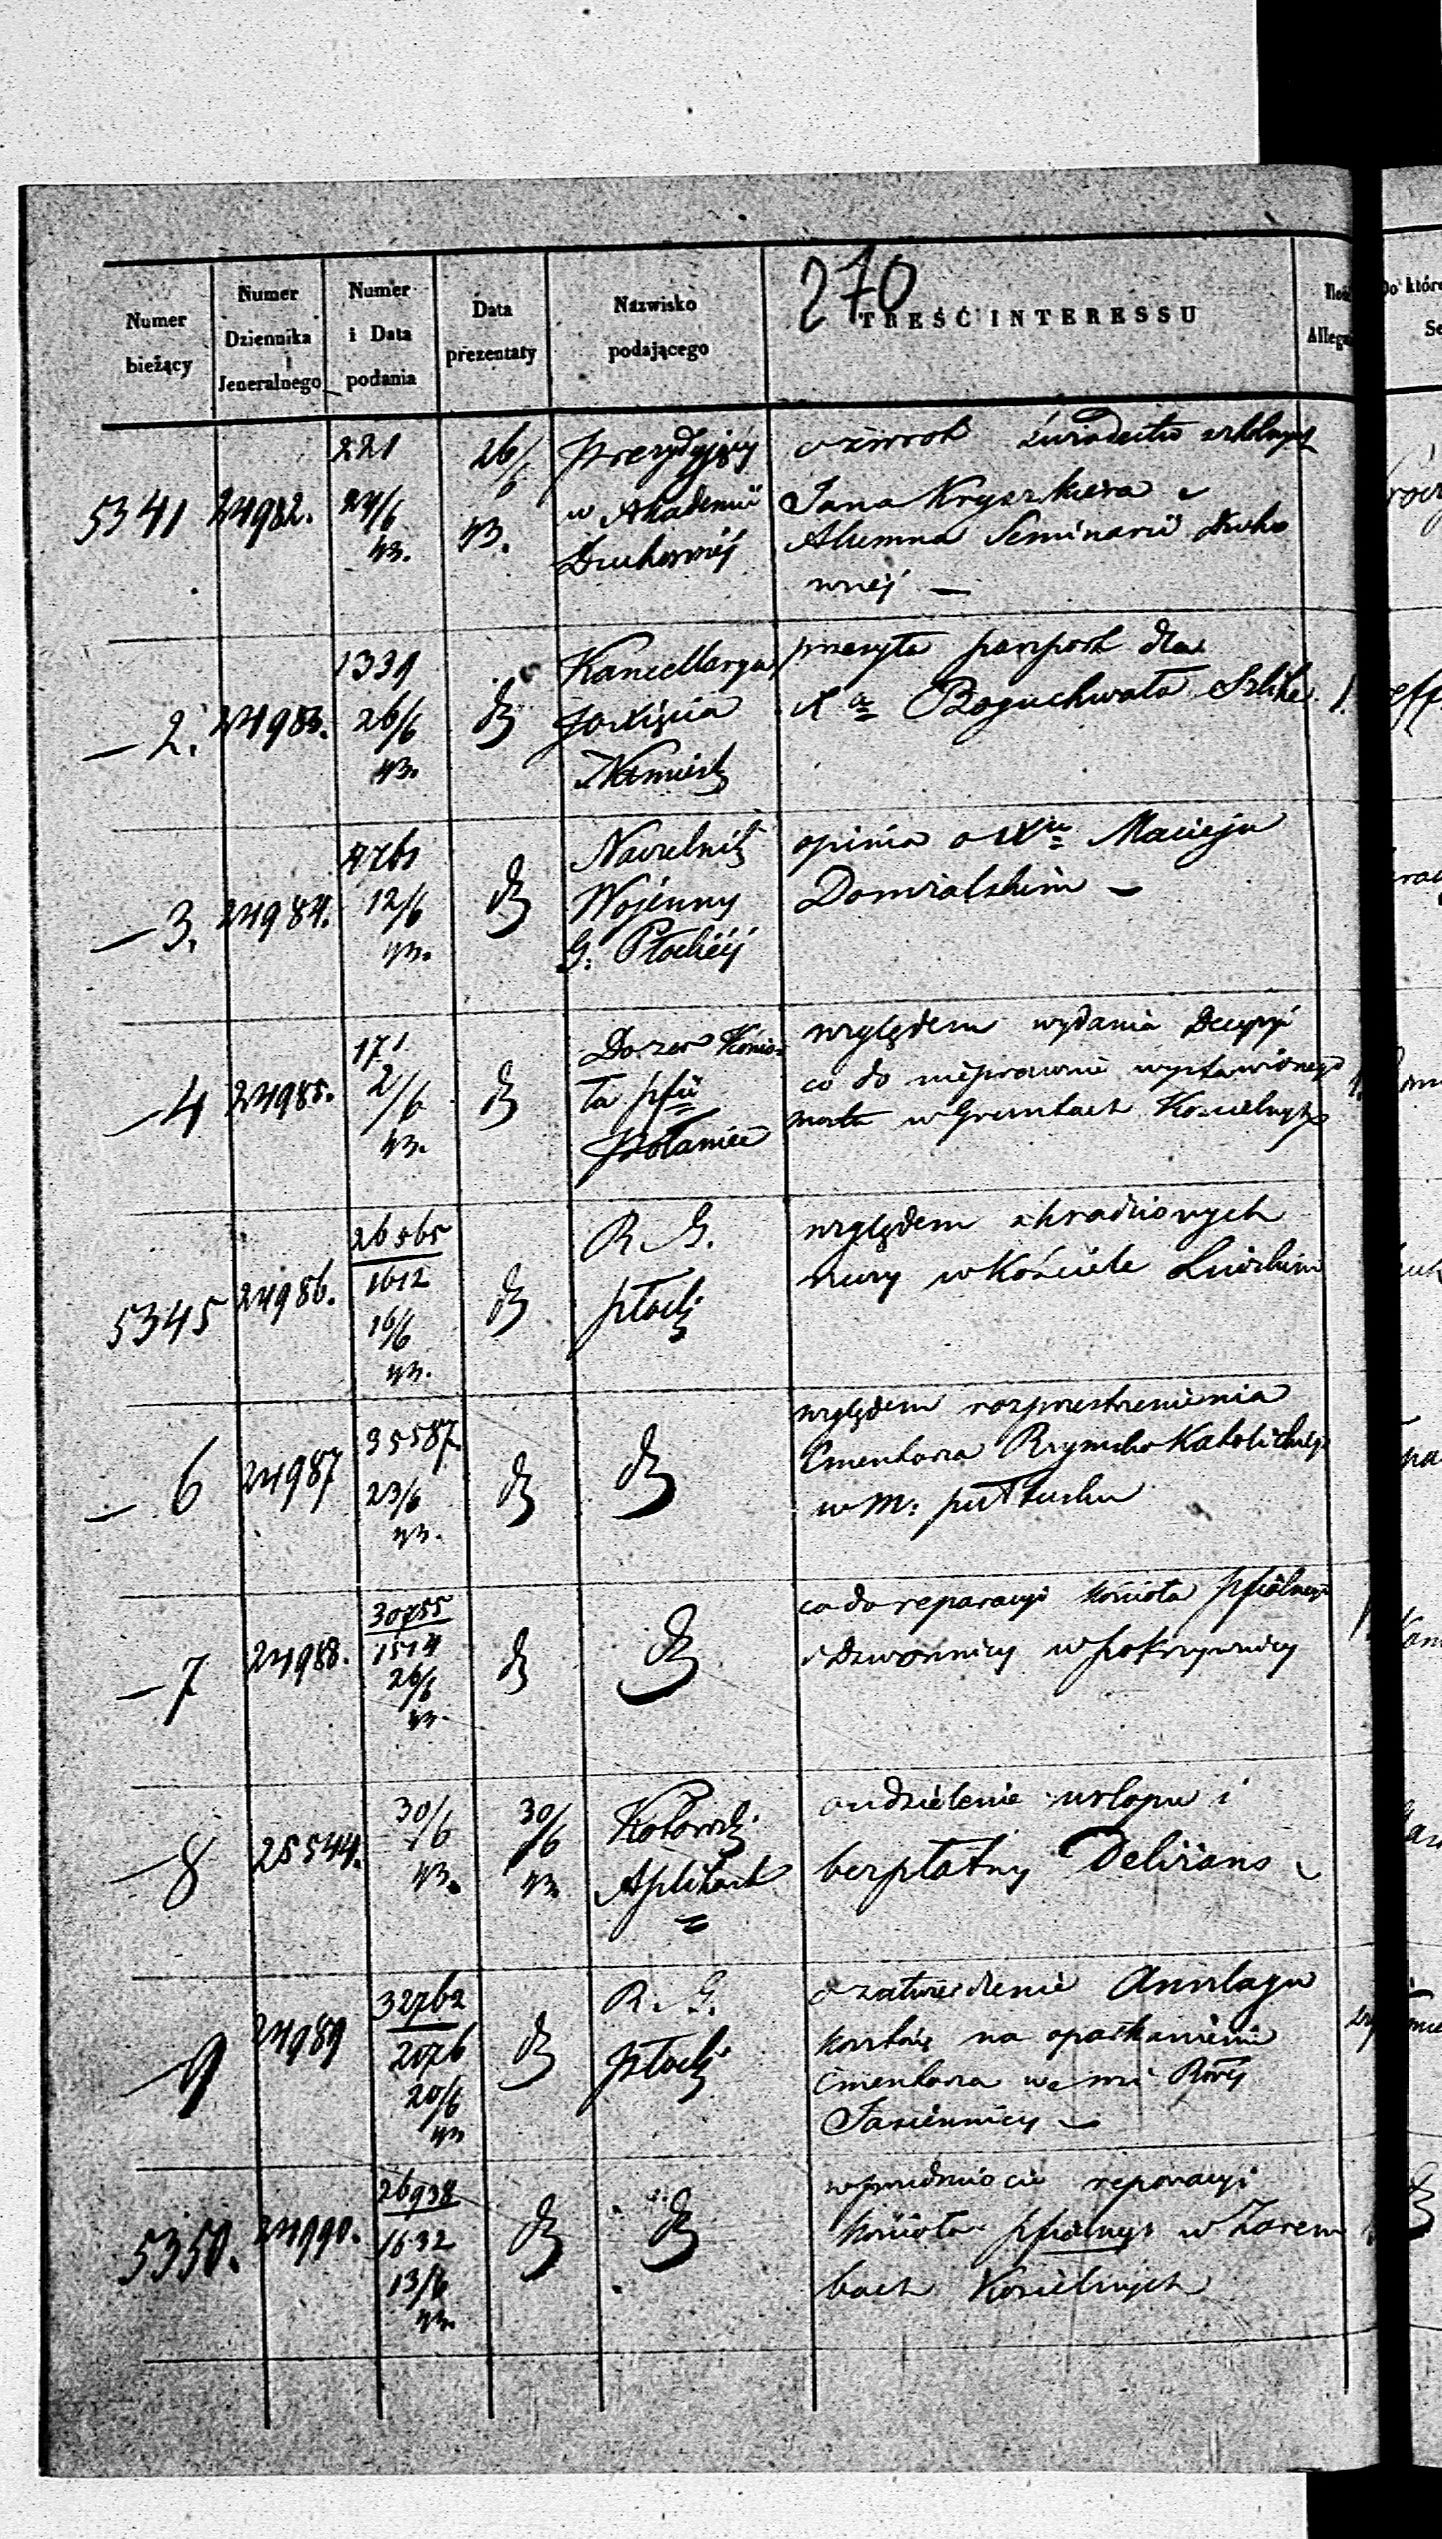 270
Numer bieżący
Numer Dziennika i Jeneralnego
Numer i Data podania
Data prezentaty
Nazwisko podającego
TREŚĆ INTERESSU
Ilość Allega
Do które
Se
5341 24982. 221 24/6 43. 26/6 43.
Prezydujący
w Akademii
Duchownéj
o zwrot świadectw szkolnych
Jana Kryszkiera
Alumna Seminarii Ducho
wnej —
— 2. 24983. 1339 26/6 43. dt
Kancellarya
JO Xięcia
Namiest
przesyła paszport dla
Xa Boguchwała Szlike 1.
— 3. 24984. 4761 12/6 43. dt
Naczelnik
Wojenny
G. Płockiéj
opinia o Xu Macieju
Domialskim —
— 4 24985. 171 2/6 43. dt
Dozór Kościo
ła pfii
Połaniec
względem wydania Decyzyi
co do nieprawnie wystawionego
w Gruntach Kościelnych
5345 24986. 26565 1612 16/6 43. dt
R. G.
Płock
względem skradzionych
rzeczy w Kościele
— 6 24987 35587. 23/6 43. dt dt
względem rozprzestrzenienia
Cmentarza Rzymsko Katolickiego
w M. Pułtusku
— 7 24988. 30755 1514 26/6 43. dt dt
co do reparacyi Kościoła pfialnego
i Dzwonnicy w Pokrzywnicy
— 8 25544. 30/6 43. 30/6 43.
Kotowski
Aplikant
o udzielenie urlopu i
bezpłatny Deliżans
— 9 24989 32762 2076 20/6 43 dt
R. G.
Płock
o zatwierdzenie Anszlagu
kosztów na oparkanienie
Cmentarza we wsi
Jasiennicy —
5350. 24990. 26938 1632 13/6 43. dt dt
w przedmiocie reparacyi
Kościoła pfialnego w Zarem
bach Kościelnych